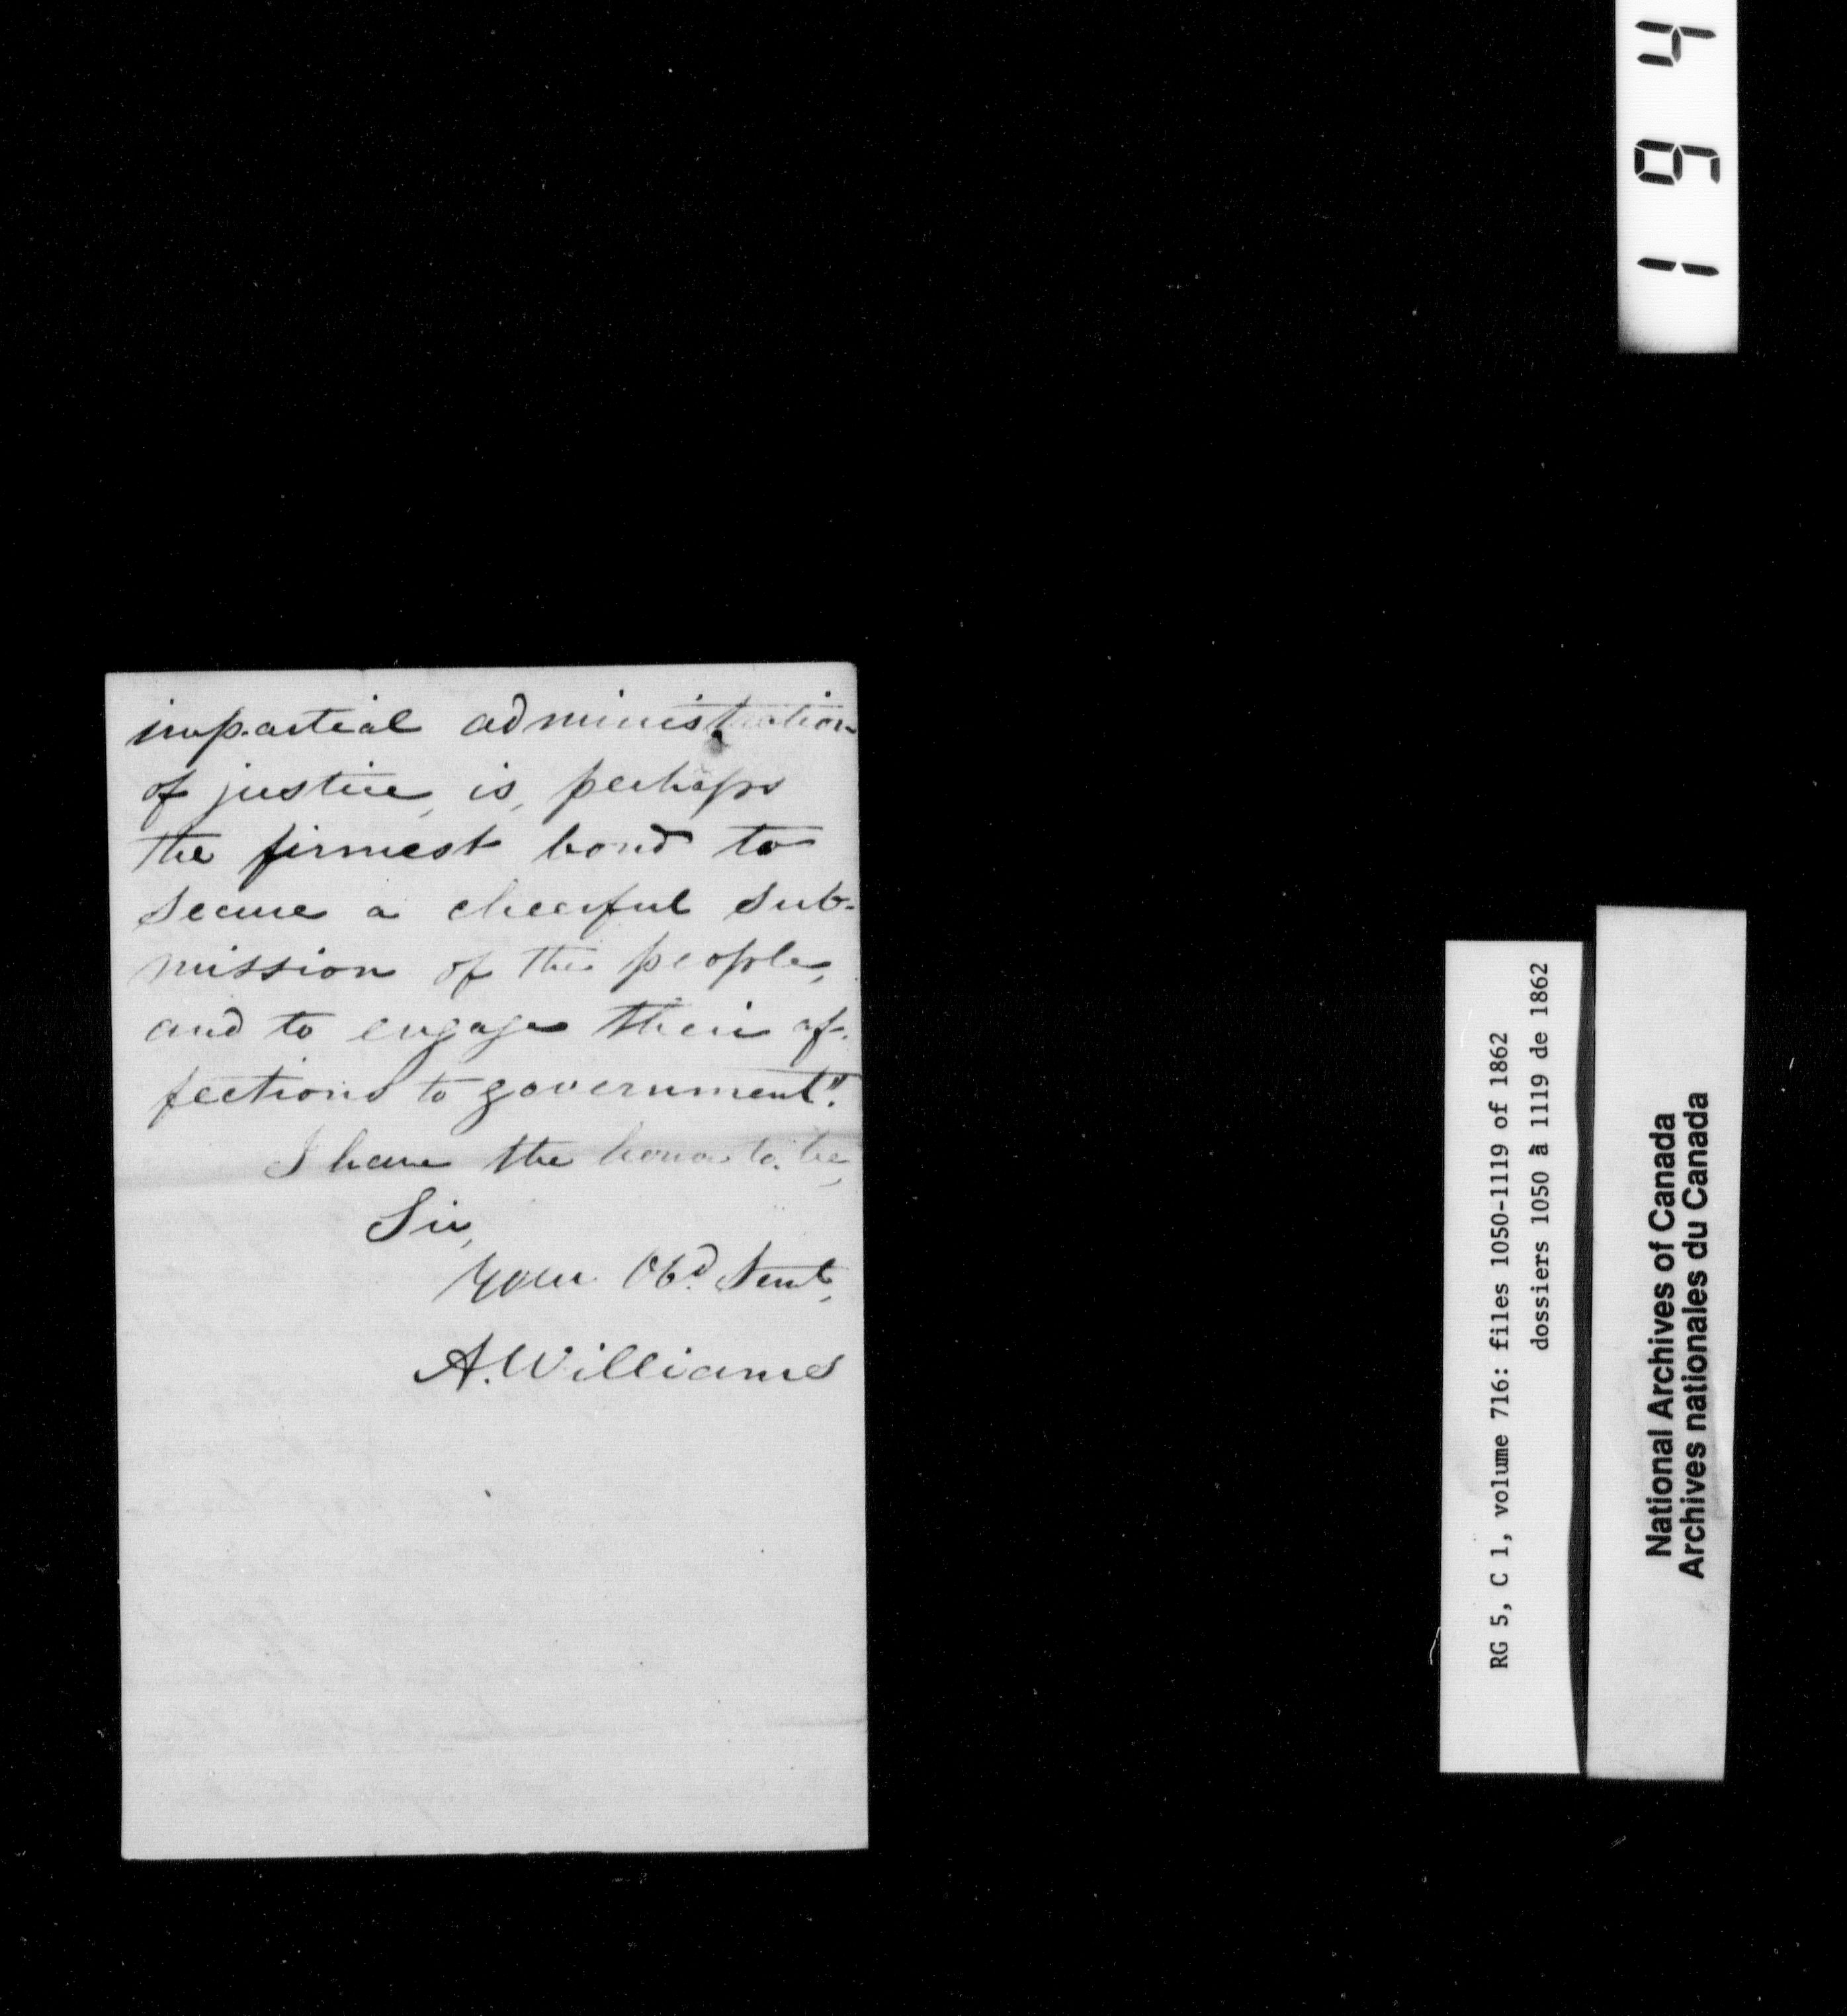 impartial administration
of justice, is, perhaps
the firmest bond to
secure a cheerful sub-
mission of the people,
and to engage their af-
fections to government".
I have the honor to be,
Sir,
Your Obd. Servt,
A. Williams
1 9 4
RG 5, C 1, volume 716: files 1050-1119 of 1862
dossiers 1050 à 1119 de 1862
National Archives of Canada
Archives nationales du Canada